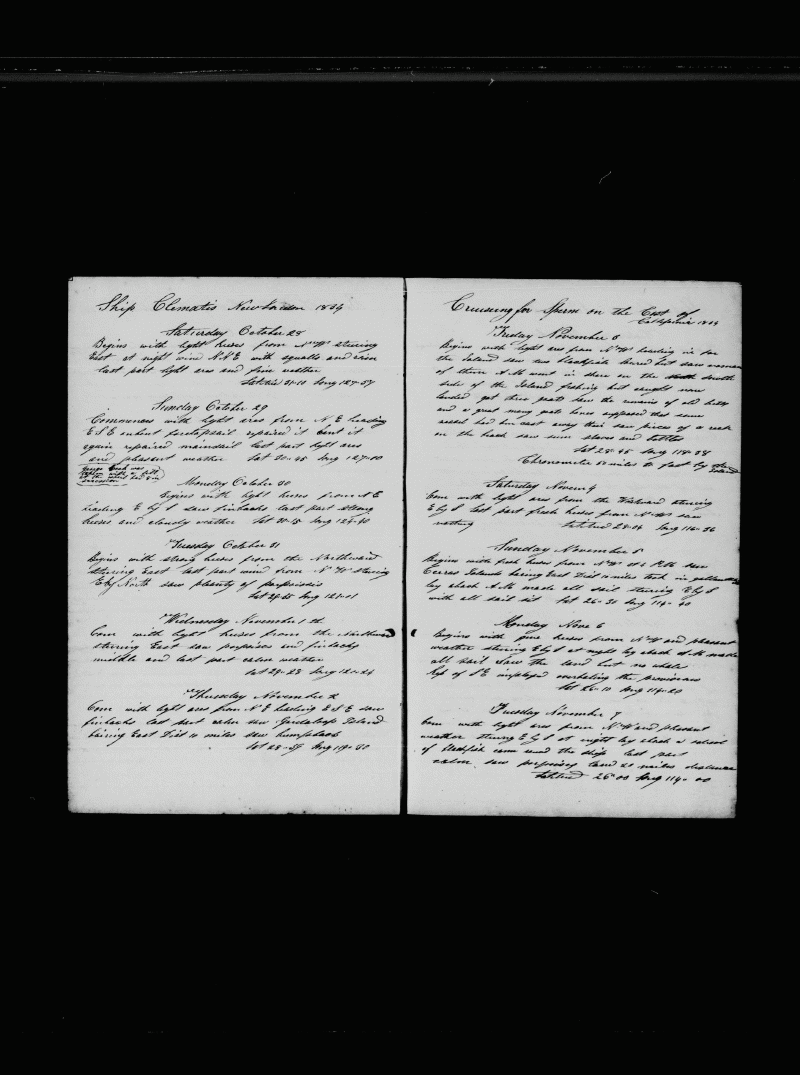 Ship Clematis New London 1854
Saturday October 28
Begins with light brises from N W stering
East at night wind N.N.E with squalls and rain
last part light ares and fine wether
Latitude 31-10 Long 127-57
Sunday October 29
Commences with light ares from N E heading
E S E unbent foretopsail repaired it bent it
again repaired mainsail last part light ares
and pleasant weather Lat 30-45 Long 127-00
with a
Monday October 30
begins with light brises from N E
heading E by S saw finbacks last part strong
brises and cloudy wether Lat 30-15 Long 124-40
Tuesday October 31
Begins with strong brises from the Northward
stering East last part wind from N W stering
E by North saw plenty of porpoises
Lat 29-55 Long 121-01
Wednesday November 1th
Com with light brises from the Northward
stering East saw porpoises and finbacks
middle and last part calm weather
Lat 29-28 Long 120-24
Thursday November 2
Com with light ares from N E heading E S E saw
finbacks last part calm saw Guadaloup Island
baring East Dist 10 miles saw humpback
Lat 28-59 Long 119-30
Cruising for Sperm on the Cost of
California 1854
Friday November 3
Begins with light ares from N W heading in for
the Island saw blackfish lowered but saw
of them A.M. went in shore on the south
side of the Island fishing but caught none
landed got three goats saw the remains of old huts
and a great many goats bones supposed that some
vessel had bin cast away thair saw pieces of a reck
on the beach saw sum staves and
Lat 28-45 Long 118-38
Chronometer 50 miles to fast by
Island
Saturday Novem 4
Com with light ares from the Westward stering
E by S last part fresh brises from N W saw
nothing Latitud 28-04 Long 116-36
Sunday November 5
Begins with fresh brises from N W at 1 P.M. saw
Cerros Islands baring East Dist 10 miles took in
lay aback A.M. made all sail stering E by S
with all sail set Lat 26-30 Long 114-40
Monday Nove 6
Begins with fine brises from N W and pleasant
weather stering E by S at night lay aback A.M. made
all sail saw the land but no whale
imployed overhaling the provisions
Lat 26-10 Long 114-20
Tuesday November 7
Com with light ares from N W and pleasant
weather stering E by S at night lay aback a school
of blackfish come round the ship last part
calm saw porpoises land 20 miles distance
Latitud 26-00 Long 114-00